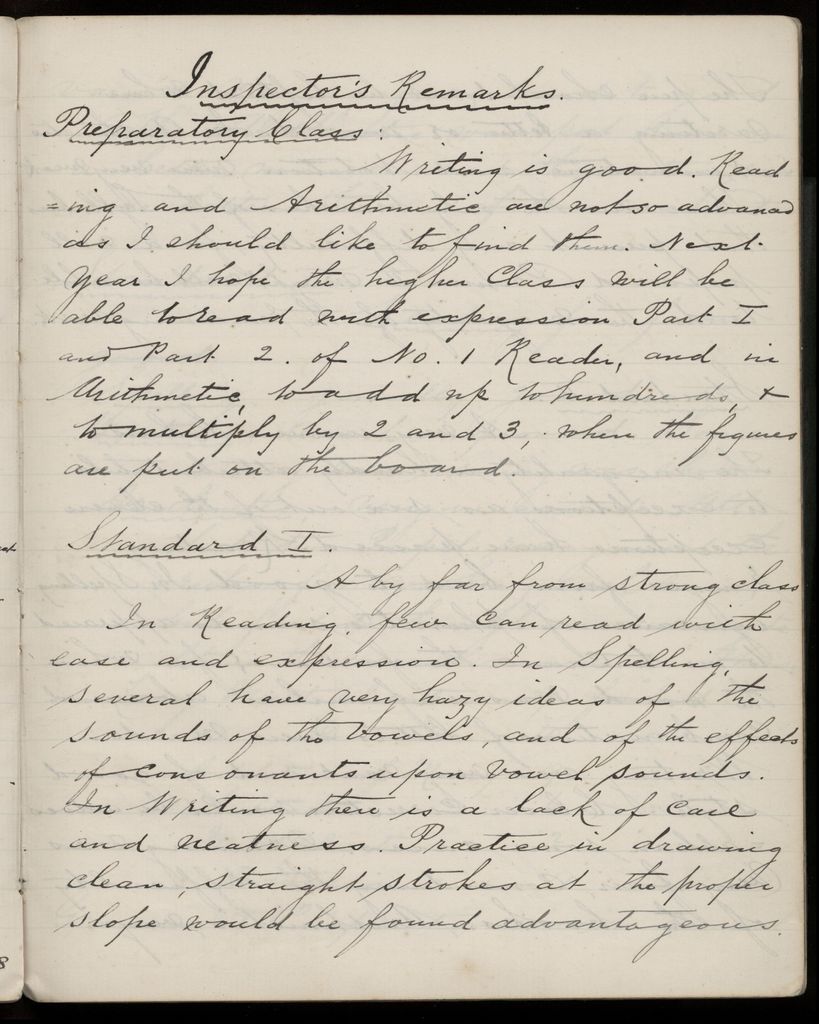 Inspector's Remarks.
Preparatory Class:
Writing is good. Read
=ing and Arithmetic are not so advanced
as I should like to find them. Next
year I hope the higher Class will be
able to read with expression Part I
and Part 2. of No. 1 Reader, and in
Arithmetic, to add up to hundreds, &
to multiply by 2 and 3, when the figures
are put on the board.
Standard I.
A by far from strong class
In Reading, few can read with
ease and expression. In Spelling,
several have very hazy ideas of the
sounds of the vowels, and of the effects
of consonants upon vowel sounds.
In Writing there is a lack of care
and neatness. Practice in drawing
clean, straight strokes at the proper
slope would be found advantageous.
8